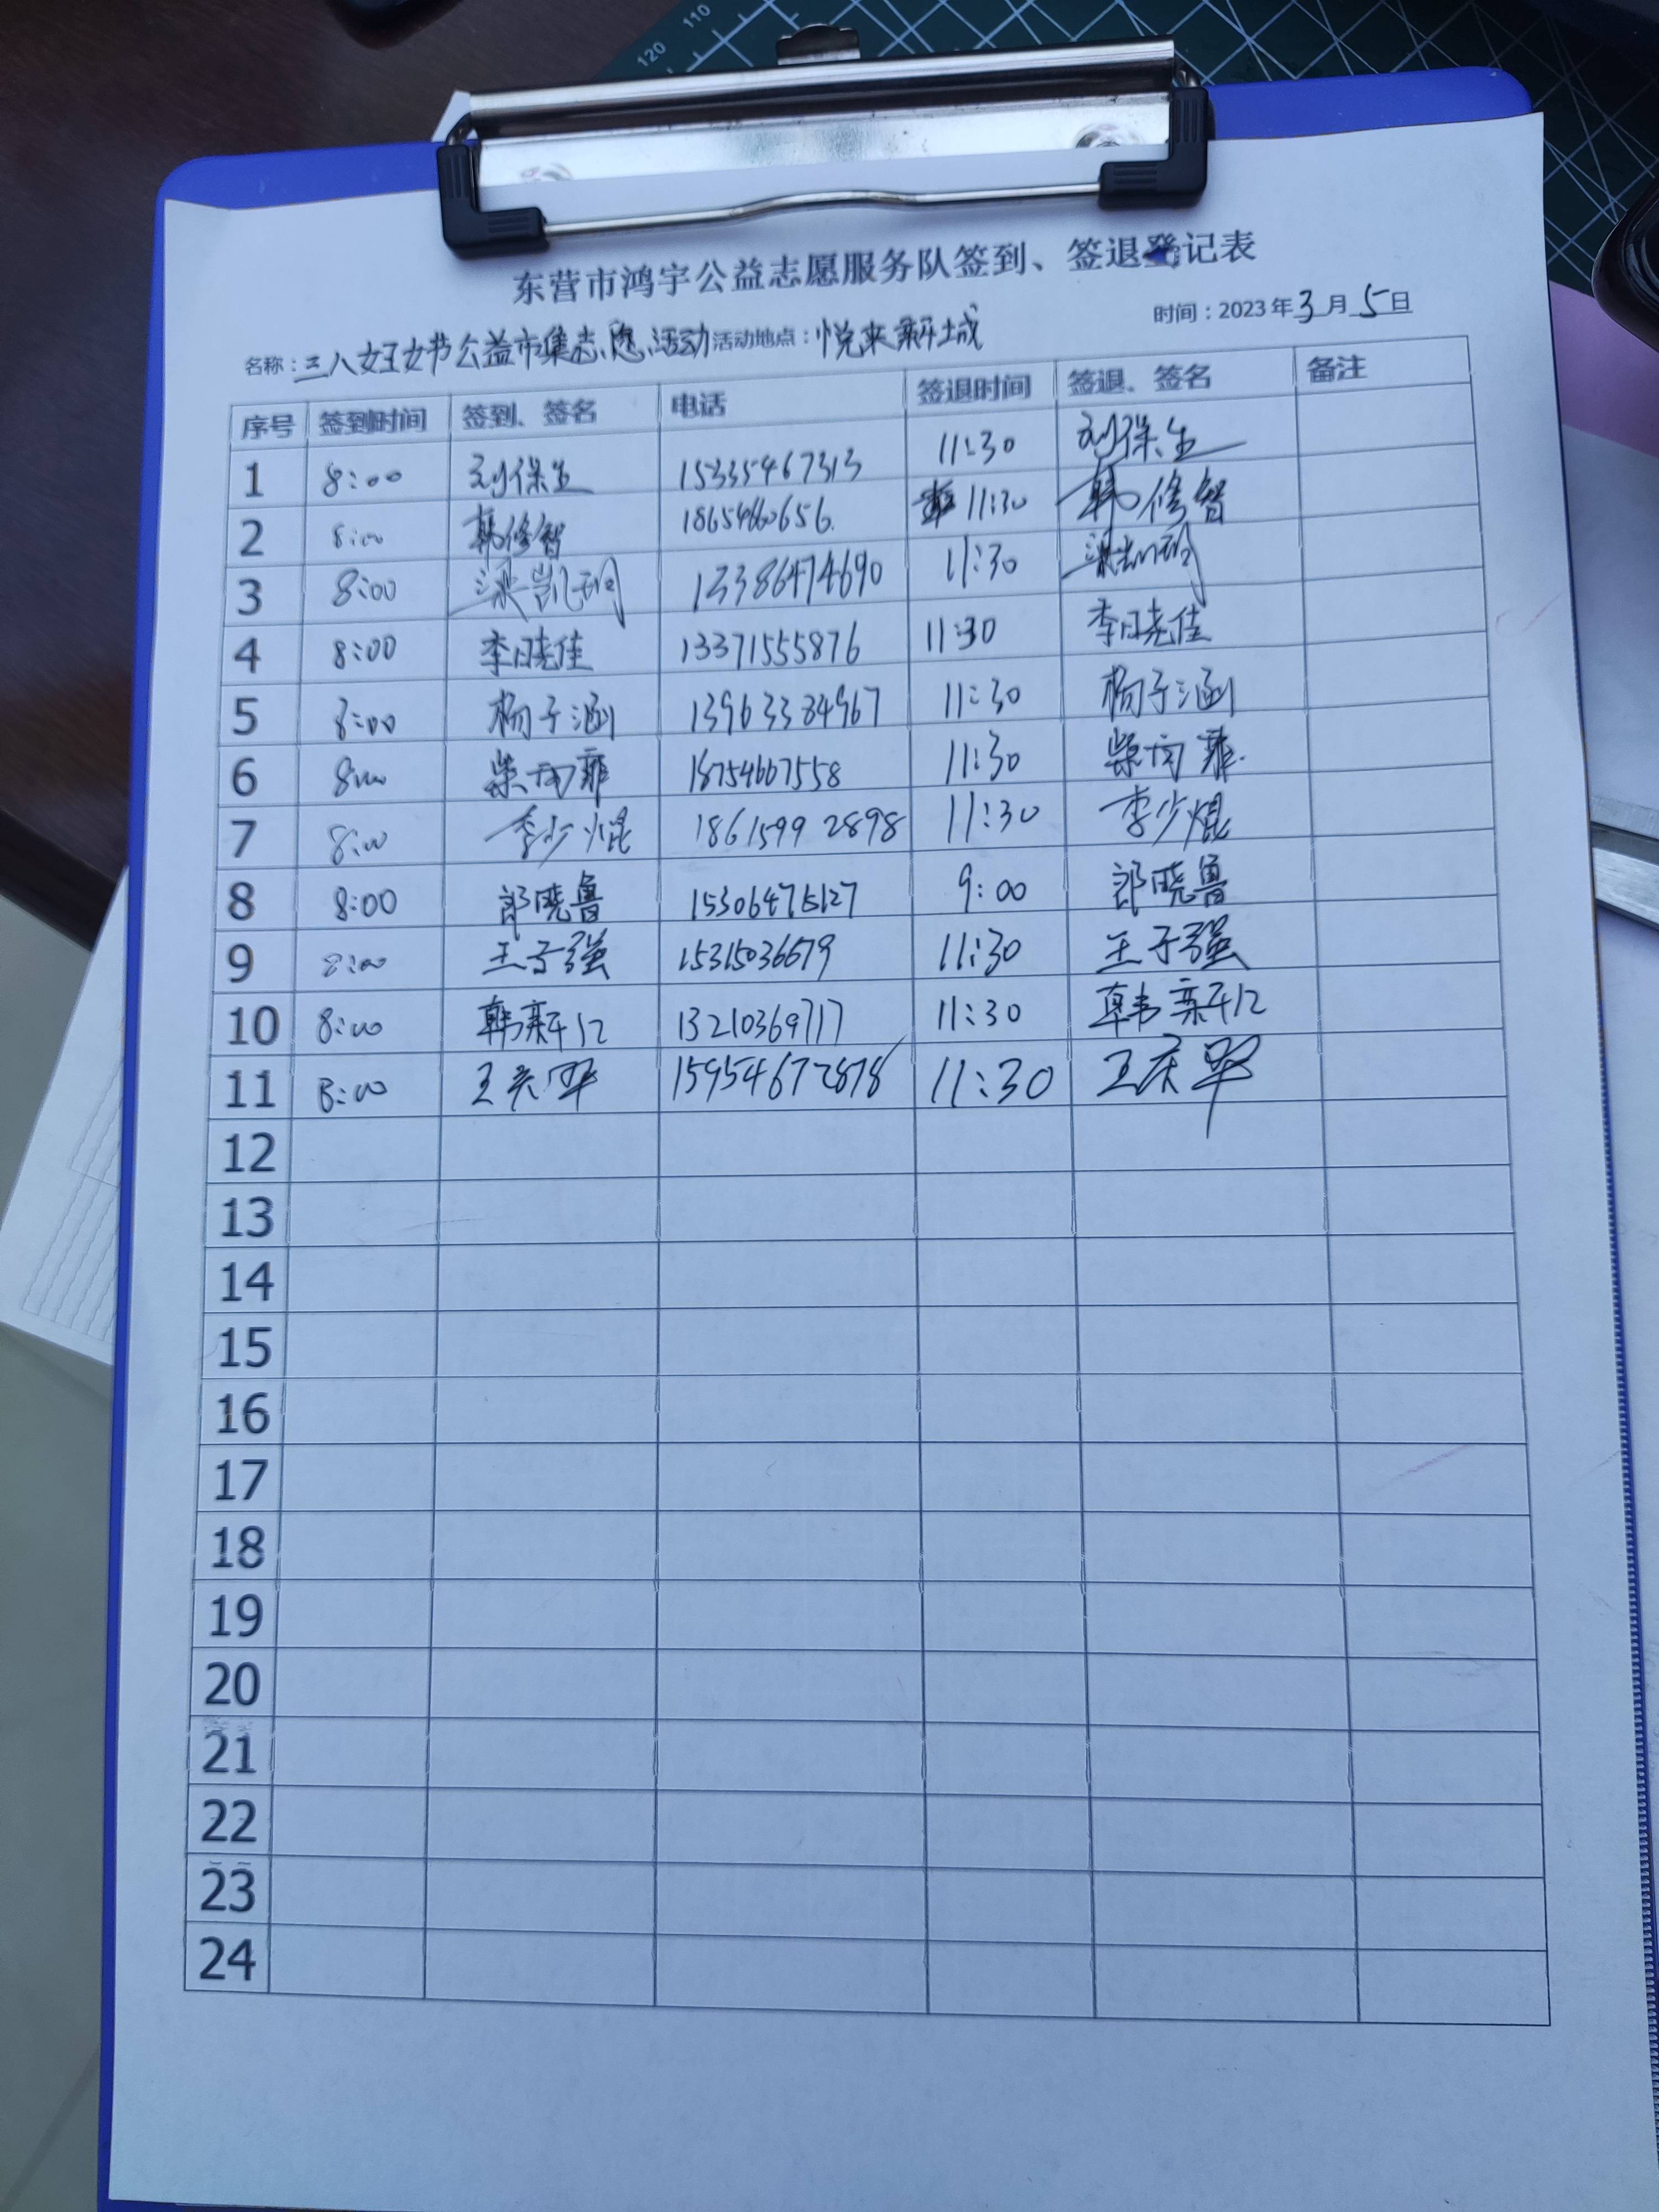 120 110
东营市鸿宇公益志愿服务队签到、签退登记表
时间：2023年3月5日
名称：三八妇女节公益市集志愿活动 活动地点：悦来新城
序号 签到时间 签到、签名 电话 签退时间 签退、签名 备注
1 8:00 刘保生 15335467313 11:30 刘保生
2 8:00 韩修智 11:30 韩修智
3 8:00 梁凯 11:30 梁凯
4 8:00 李晓佳 13371555876 11:30 李晓佳
5 8:00 杨子涵 13963384967 11:30 杨子涵
6 8:00 柴雨菲 18754667558 11:30 柴雨菲
7 8:00 李少焜 18615992898 11:30 李少焜
8 8:00 郎晓鲁 9:00 郎晓鲁
9 8:00 王子强 15315036679 11:30 王子强
10 8:00 韩新 13210369717 11:30 韩新
11 8:00 王庆 15954672878 11:30 王庆
12
13
14
15
16
17
18
19
20
21
22
23
24